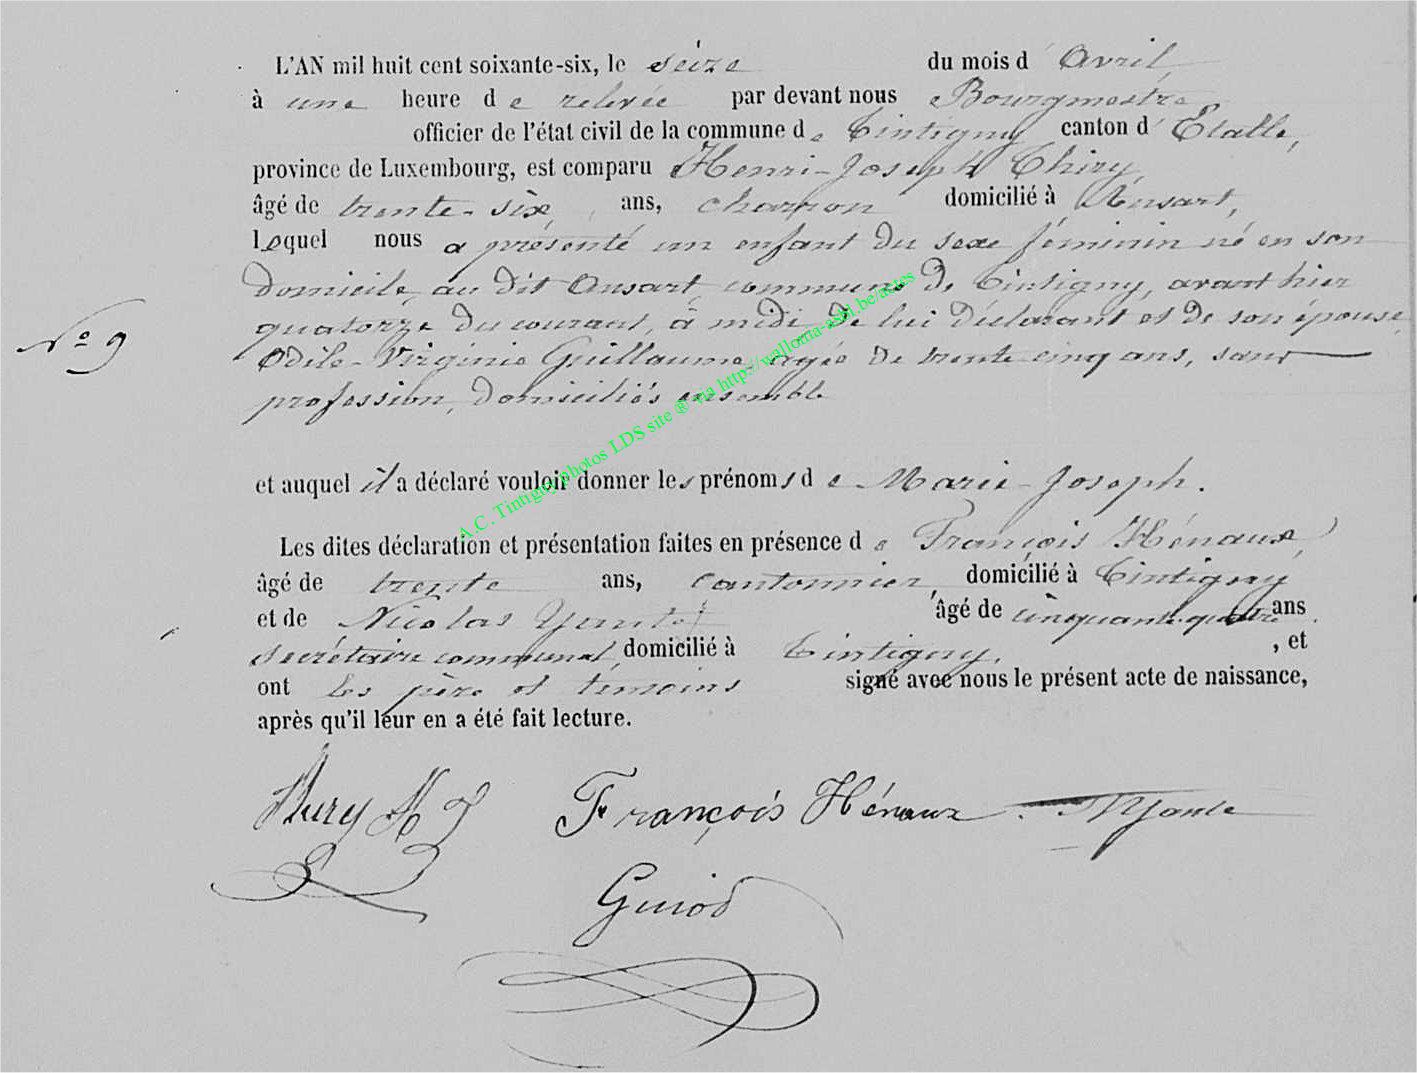 L'AN mil huit cent soixante-six, le seize du mois d'Avril
à une heure de relevée par devant nous Bourgmestre
officier de l'état civil de la commune de Tintigny canton d'Etalle,
province de Luxembourg, est comparu Henri-Joseph Thiry,
âgé de trente-six ans, charron domicilié à Ansart,
lequel nous a présenté un enfant du sexe féminin né en son
domicile, au dit Ansart commune de Tintigny, avant hier
N° 9
quatorze du courant, à midi de lui déclarant et de son épouse
Odile-Virginie Guillaume agée de trente cinq ans, sans
profession, domiciliés ensemble
et auquel il a déclaré vouloir donner les prénoms de Marie-Joseph.
Les dites déclaration et présentation faites en présence de François Hénaux,
âgé de trente ans, cantonnier, domicilié à Tintigny
et de Nicolas âgé de cinquante quatre ans
secrétaire communal, domicilié à Tintigny, , et
ont les père et témoins signé avec nous le présent acte de naissance,
après qu'il leur en a été fait lecture.
François Hénaux
A.C. Tintigny photos LDS site ® via http://wallonia-asbl.be/actes